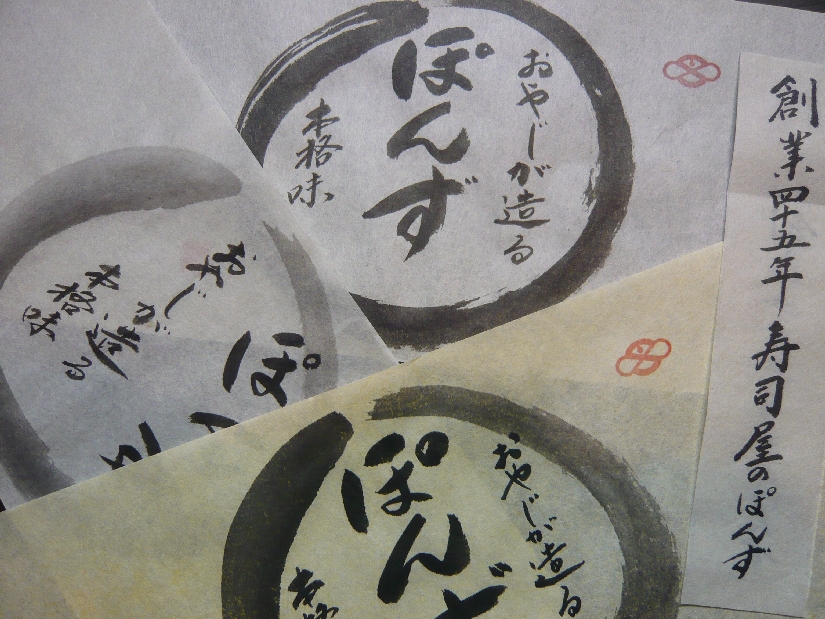 おやじが造る
ぽんず
本格味
創業四十五年 寿司屋のぽんず
おやじが造る
ぽ
本格味
おやじが造る
ぽんず